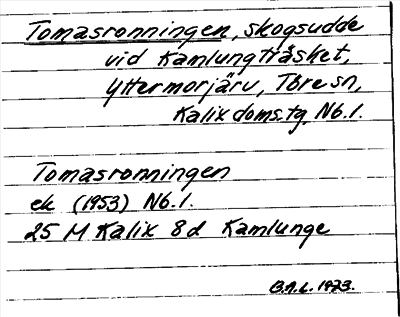 Tomasronningen, skogsudde
vid Kamlungträsket,
Yttermorjärv, Töre sn,
Kalix doms.tg. Nb.l.
Tomasronningen
ek (1953) Nb.l.
25 M Kalix 8d Kamlunge
B.A.L. 1973.